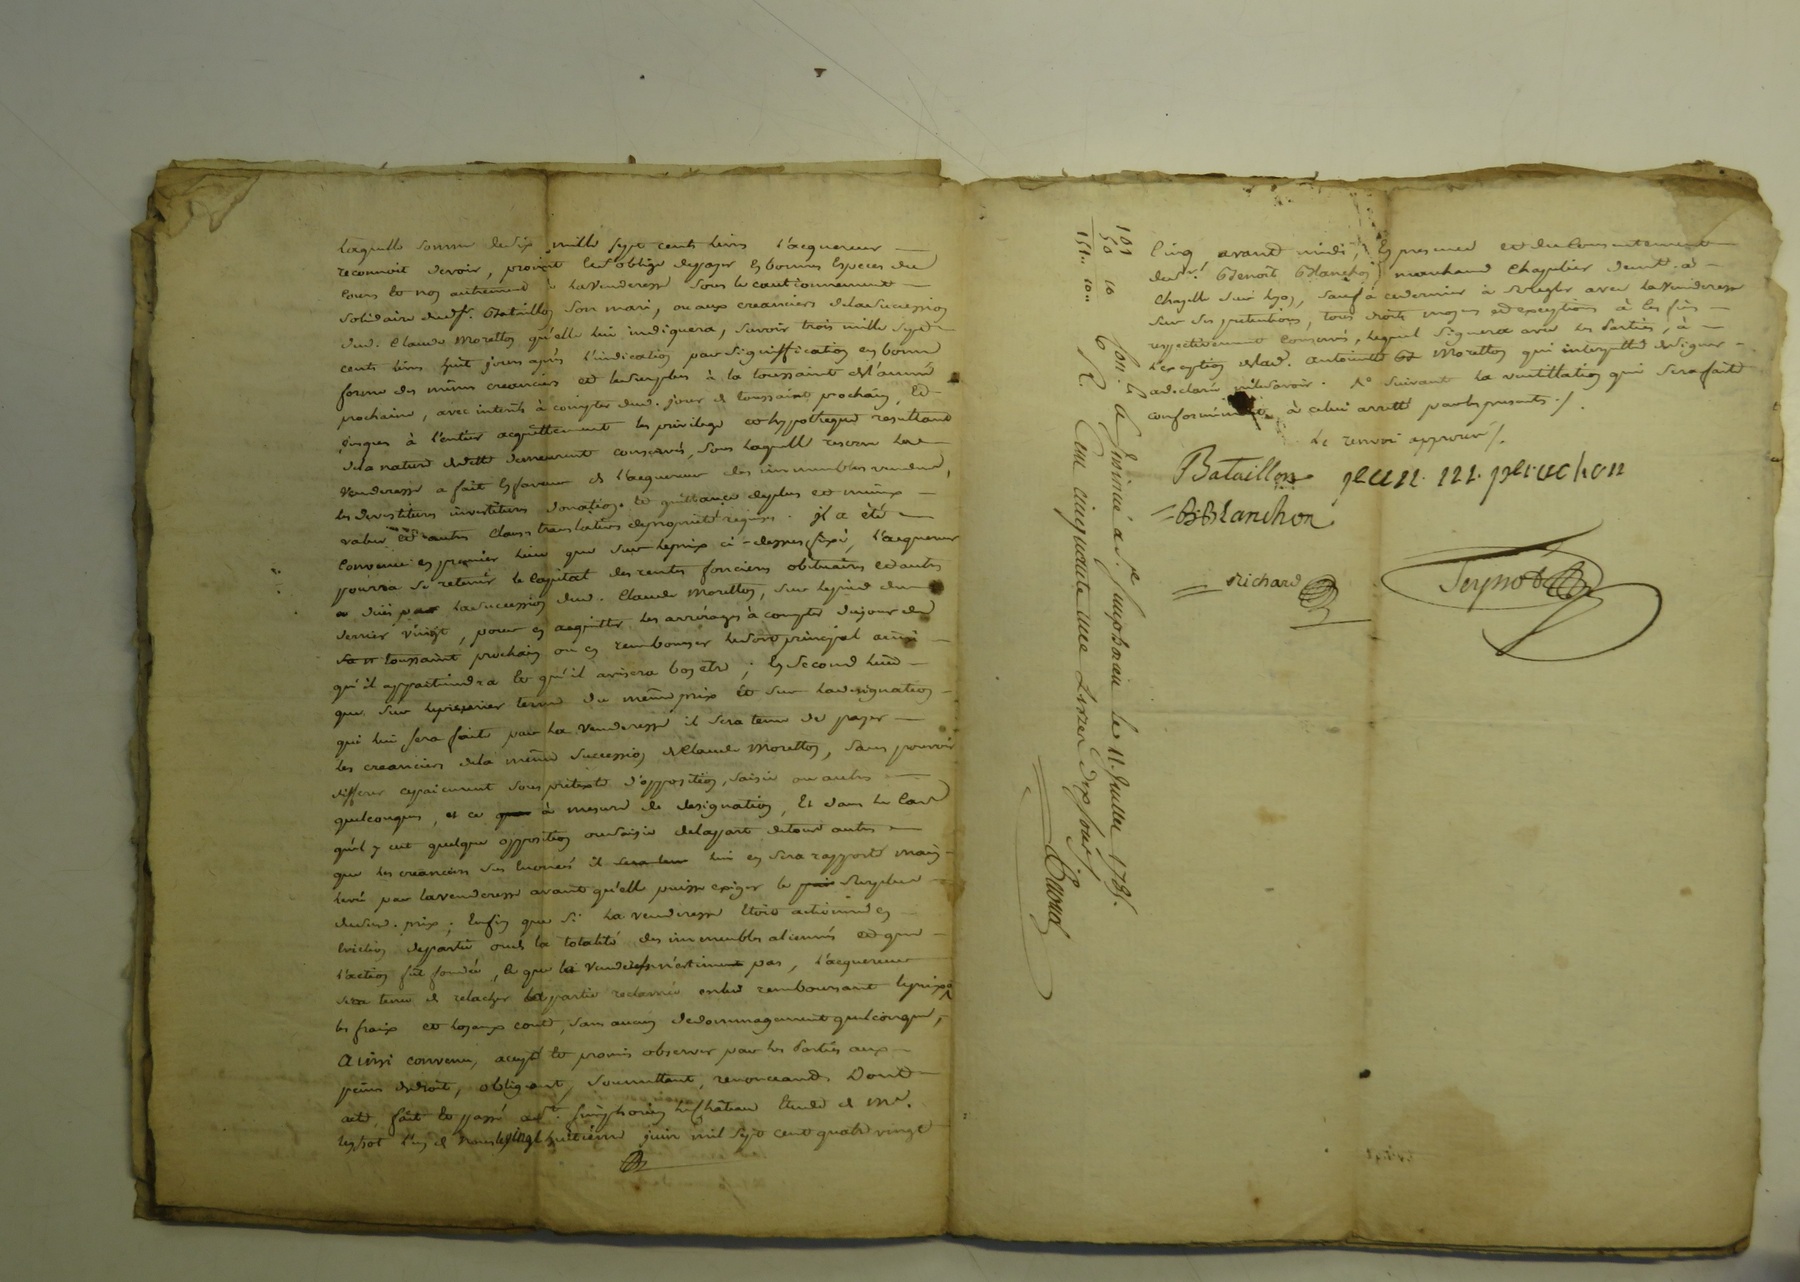 laquelle somme de six mille sept cents livres l'acquereur
reconnoit devoir, promet et s'oblige de payer en bonnes especes du
cours et non autrement à la venderesse sous le cautionnement
solidaire dud. sr. Bataillon son mari, ou aux creanciers de la succession
dud. Claude Moretton qu'elle lui indiquera, savoir trois mille sept
cents livres huit jours après l'indication par signiffication en bonne
forme des mêmes creanciers et le surplus à la toussaint de l'année
prochaine, avec interêts à compter dud. jour de toussaint prochain, et
jusques à l'entier acquittement les privilege et hypotheque resultant
de la nature de dette demeurent conservés, sous laquelle reserve la
venderesse a fait en faveur de l'acquereur des immeubles vendus,
les devestitures investitures donation et quittance de plus et mieux
value et autres clauses translatives de propriété requises. il a été
convenu en premier lieu que sur le prix ci-dessus fixé, l'acquereur
pourra se retenir le capital des rentes foncieres obituaires et autres
dûes par la succession dud. Claude Moretton, sur le pied du
denier vingt, pour en acquitter les arrérages à compter du jour de
toussaint prochain ou en rembourser le sort principal ainsi
qu'il appartiendra et qu'il avisera bon etre; en second lieu
que sur le premier terme du même prix et sur la designation
qui lui sera faite par la venderesse il sera tenu de payer
les creanciers de la même succession de Claude Moretton, sans pouvoir
differer ce paiement sous pretexte d'opposition, saisie ou autres
quelconques, et ce à mesure de designation, et dans le cas
qu'il y eut quelque opposition ou saisie de la part de tous autres
que les creanciers sus énoncés il lui en sera rapporté main
levée par la venderesse avant qu'elle puisse exiger le surplus
dud. prix; enfin que si la venderesse étoit actionnée en
eviction de partie ou de la totalité des immeubles alienés et que
l'action fût fondée, et que la venderesse pas, l'acquereur
sera tenu de relacher la partie reclamée en lui remboursant le prix
les fraix et loyaux couts, sans aucun dedommagement quelconque,
Ainsi convenu, accepté et promis observer par les parties aux
peines de droit, obligeant, soumettant, renonceant. Dont
acte, fait et passé à St. Simphorien le Château Etude de Me.
Teyssot l'un de nous le vingt huitième juin mil sept cent quatre vingt
cinq avant midi, en presence et du consentement
de sr. Benoit Blanchon marchand chapelier demt. à
Chazelle sur Lyon, sauf à ce dernier à se regler avec la venderesse
sur ses pretentions, tous droits moyens et exceptions à ces fins
respectivement conservés, lequel signera avec les parties, à
l'exception de lad. antoinette Moretton qui interpellée de signer
a declaré ne le savoir. suivant la ventillation qui sera faite
conformément à celui arretté par les presentes ./.
Le renvoi approuvé /.
Bataillon jean m. perachon
B: Blanchon
Richard Teyssot
101
50 10
151.. 10..
Con. le 11. Juillet 1785.
R. Cent cinquante une Livres dix sous